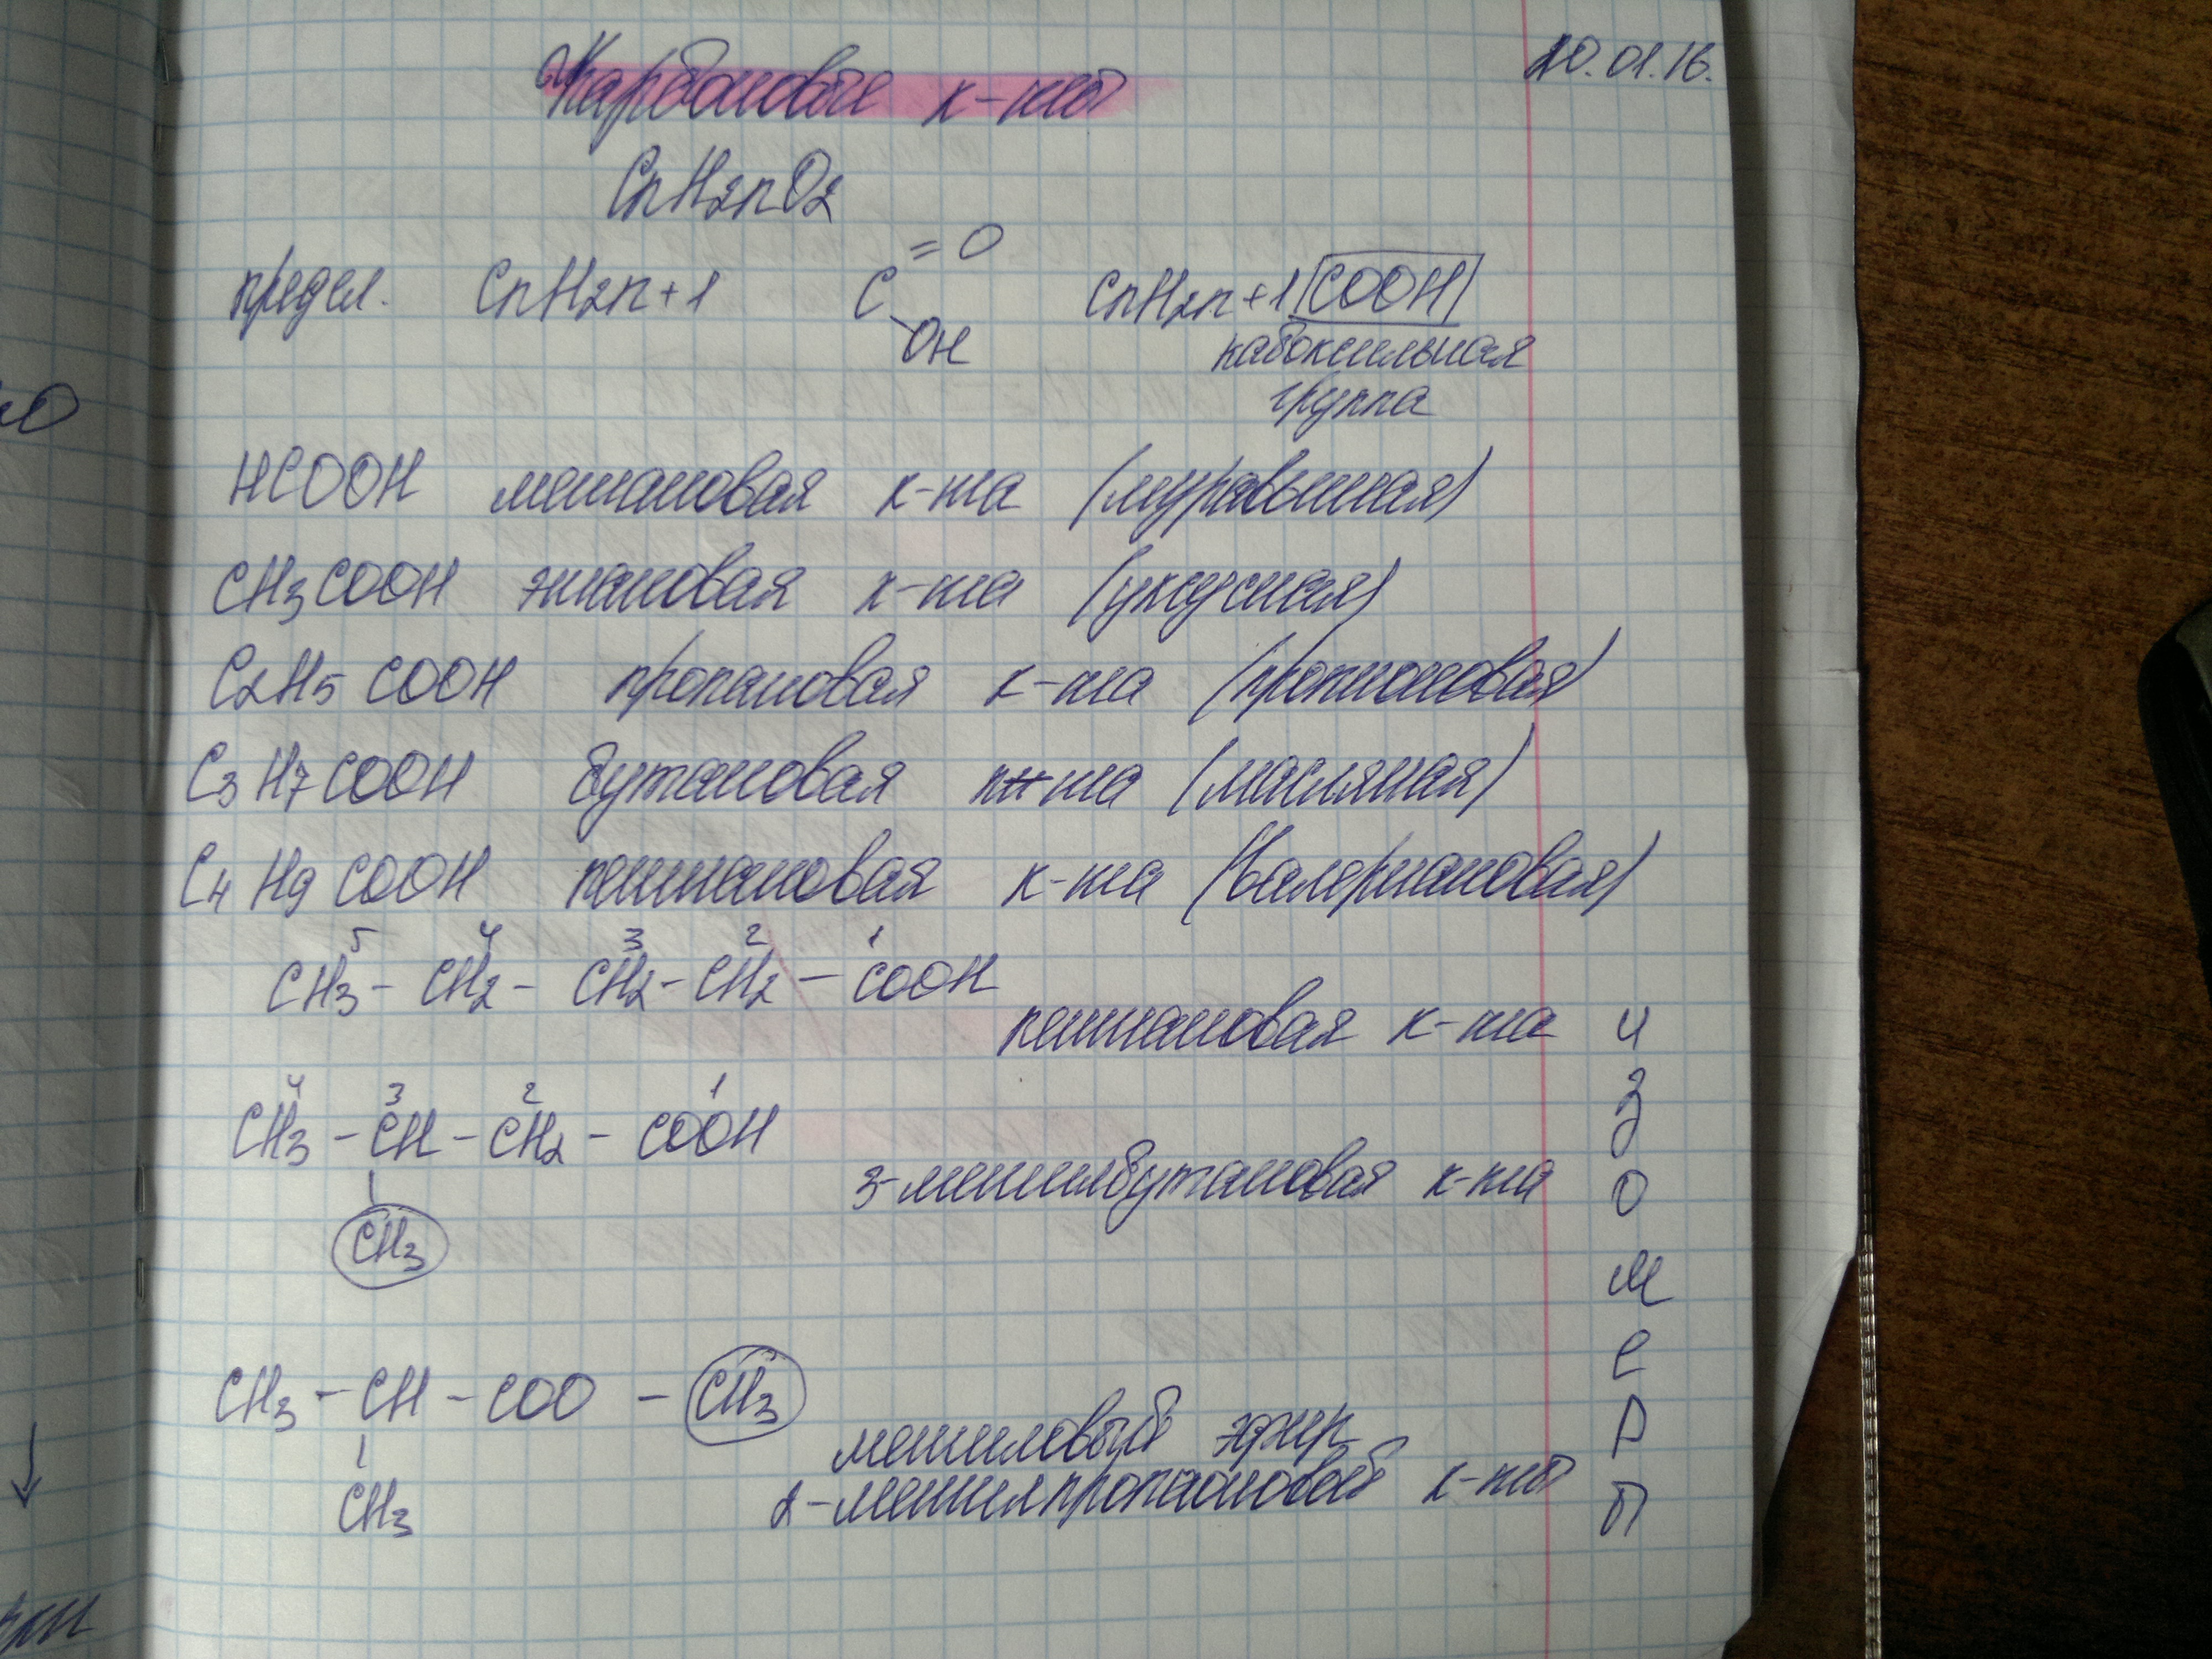 20.01.16.
Карбоновые к-ты
CnH2nO2
предел. CnH2n+1 C =O OH CnH2n+1 COOH
кабоксильная
группа
HCOOH метановая к-та (муравьиная)
CH3COOH этановая к-та (уксусная)
C2H5 COOH пропановая к-та (пропионовая)
C3H7COOH бутановая к-та (масляная)
C4H9COOH пентановая к-та (валериановая)
5 4 3 2 1
CH3 - CH2 - CH2 - CH2 - COOH
пентановая к-та
4 3 2 1
CH3 - CH - CH2 - COOH
3-метилбутановая к-та
CH3
CH3 - CH - COO - CH3
метиловый эфир
CH3
2-метилпропановой к-ты
изомеры